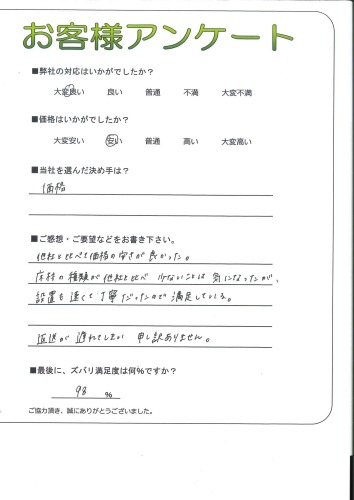 お客様アンケート
■弊社の対応はいかがでしたか？
大変良い 良い 普通 不満 大変不満
■価格はいかがでしたか？
大変安い 安い 普通 高い 大変高い
■当社を選んだ決め手は？
価格
■ご感想・ご要望などをお書き下さい。
他社と比べて価格の安さが良かった。
床材の種類が他社と比べ 少ないことは 気になったが、
設置も速くて丁寧だったので満足している。
返送が 遅れてしまい 申し訳ありません。
■最後に、ズバリ満足度は何％ですか？
98 ％
ご協力頂き、誠にありがとうございました。